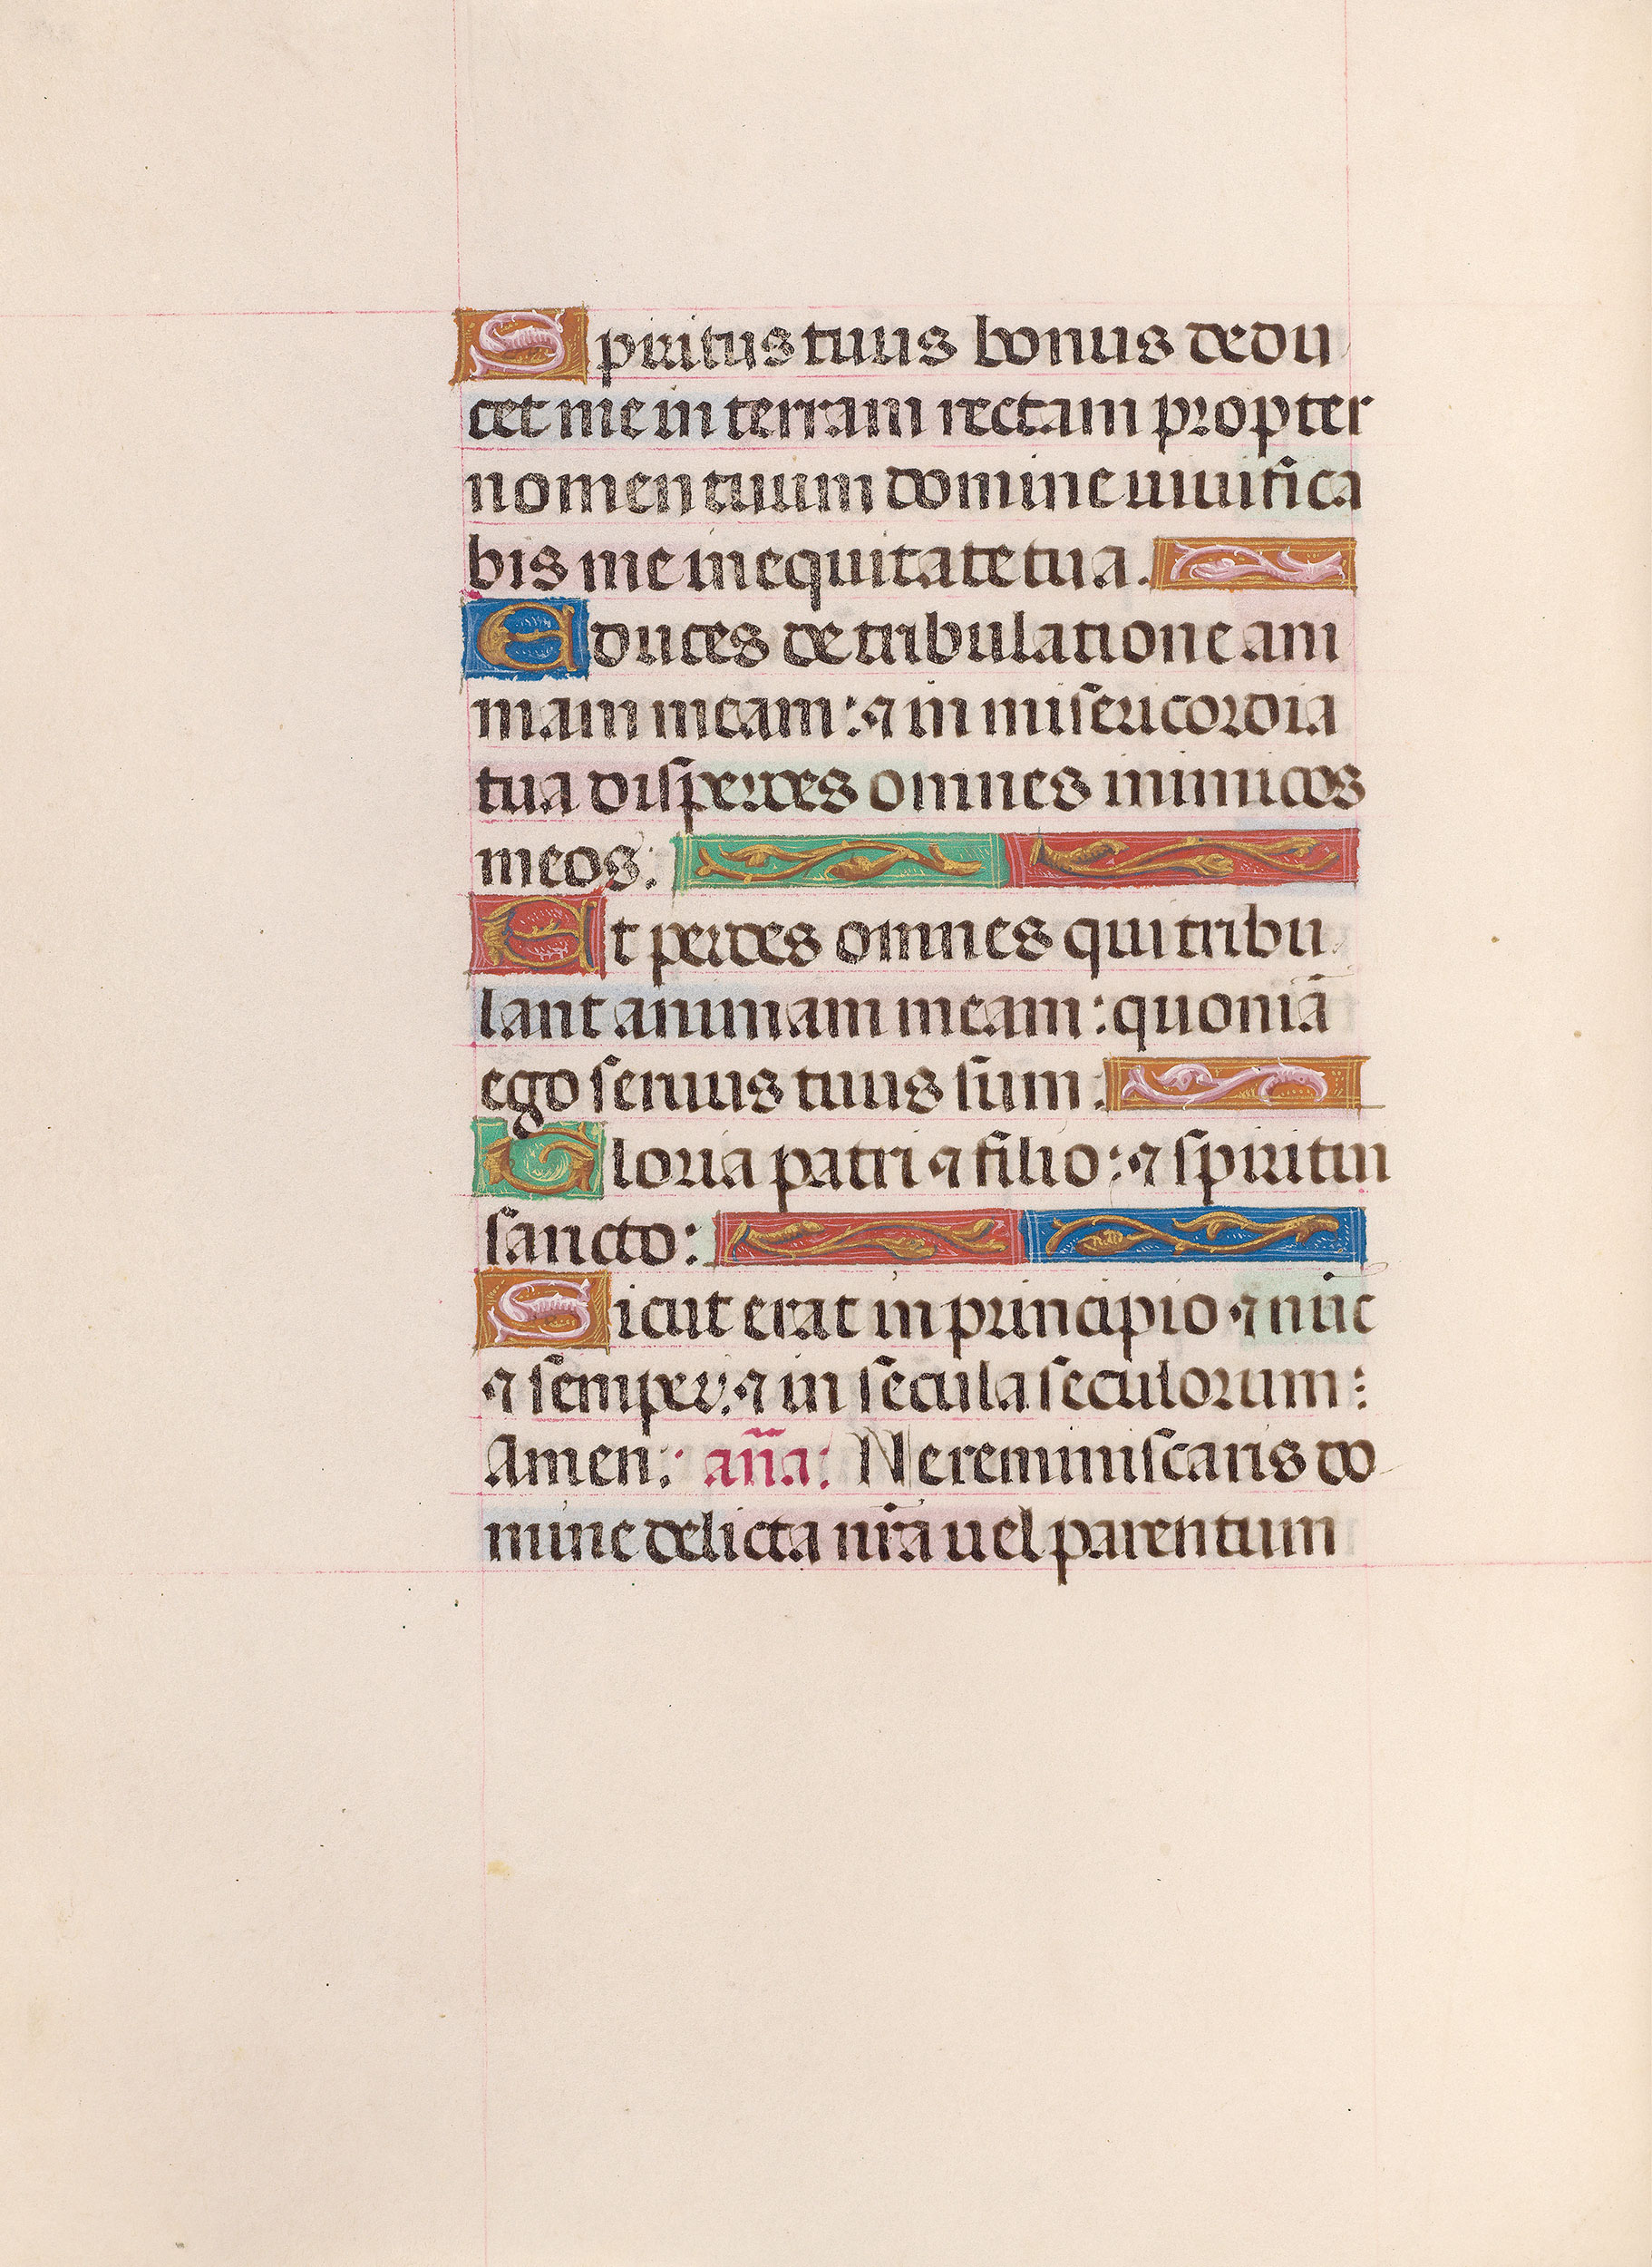 Spiritus tuus bonus dedu
cet me in terram rectam propter
nomen tuum domine uiuifica
bis me in equitate tua.
Educes de tribulatione ani
mam meam: ⁊ in misericordia
tua disperdes omnes inimicos
meos:
Et perdes omnes qui tribu
lant animam meam: quoniā
ego seruus tuus sum:
Gloria patri ⁊ filio: ⁊ spiritui
sancto:
Sicut erat in principio ⁊ nūc
⁊ semper: ⁊ in secula seculorum:
Amen: an̄a: Ne reminiscaris do
mine delicta nr̄a uel parentum